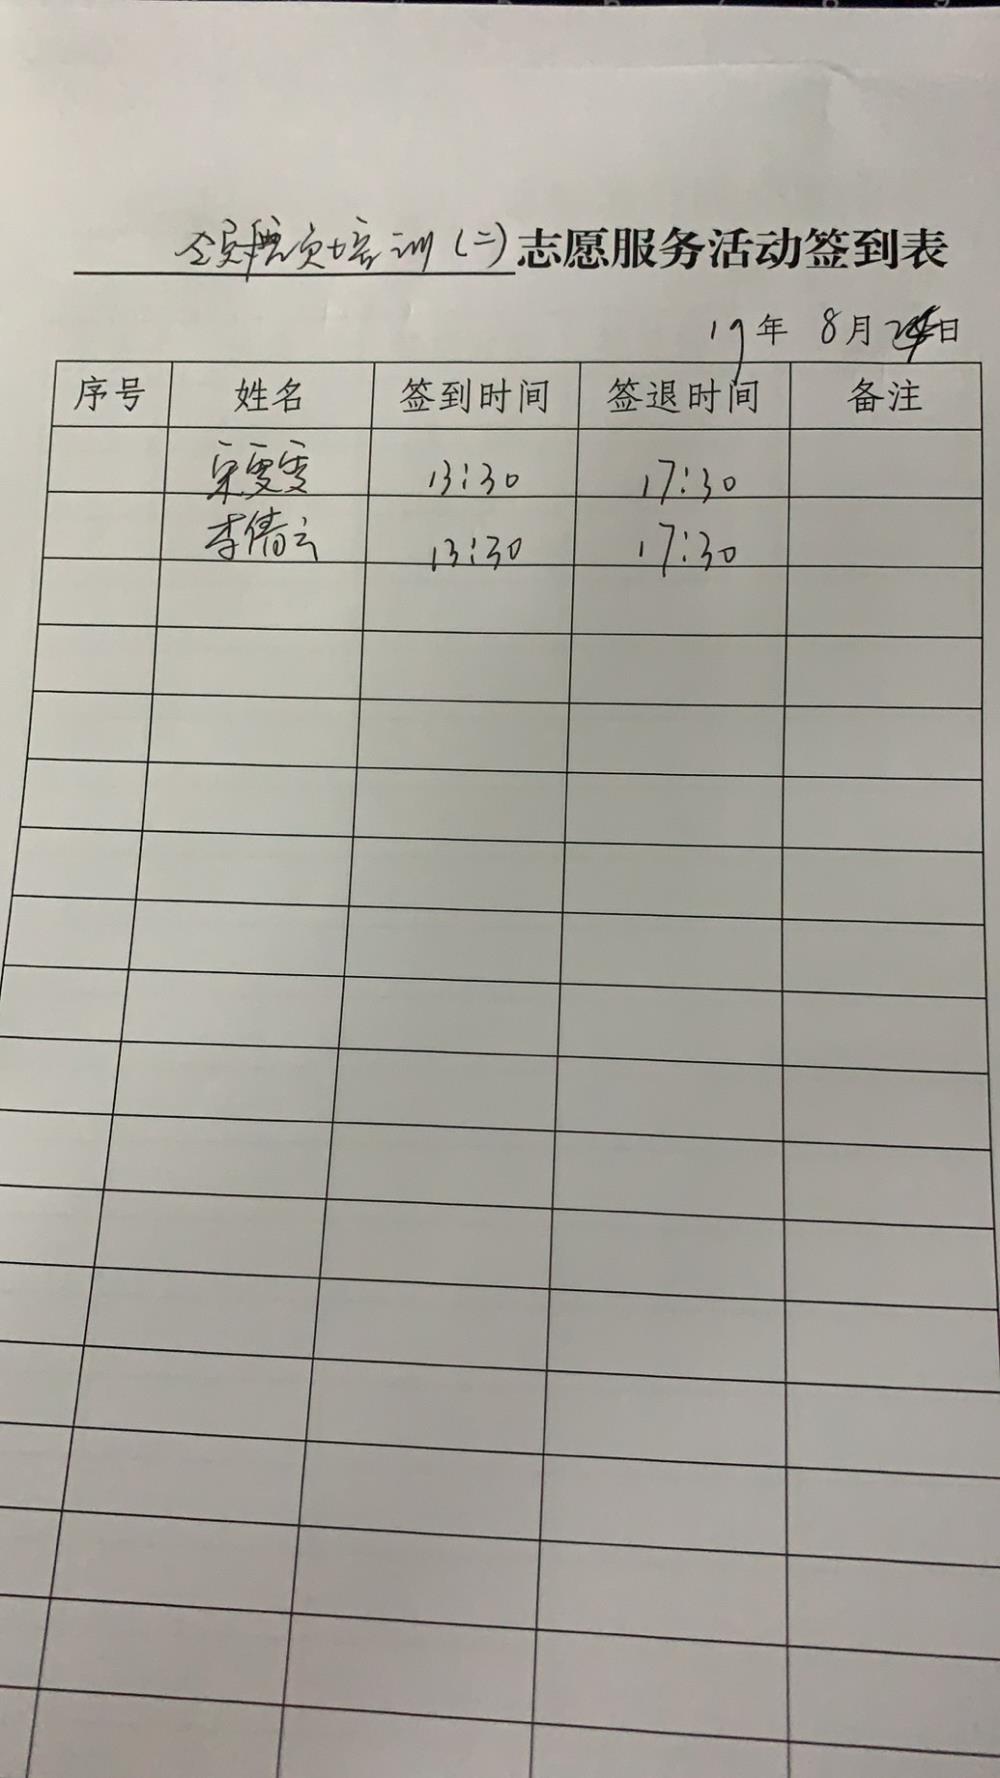 培训(二)志愿服务活动签到表
19年 8月 日
序号 姓名 签到时间 签退时间 备注
宋雯雯 13:30 17:30
李倩云 13:30 17:30